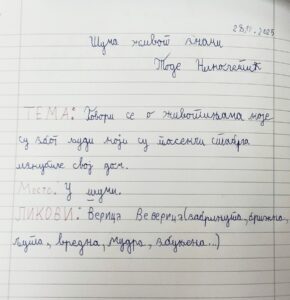 28.11.2025
Шума живот значи
Тоде Николетић
ТЕМА: Говори се о животињама које
су због људи који су посекли стабра
изгубиле свој дом.
Место: У шуми.
ЛИКОВИ: Верица Веверица (забринута, брижна,
љута, вредна, мудра, збуњена...)